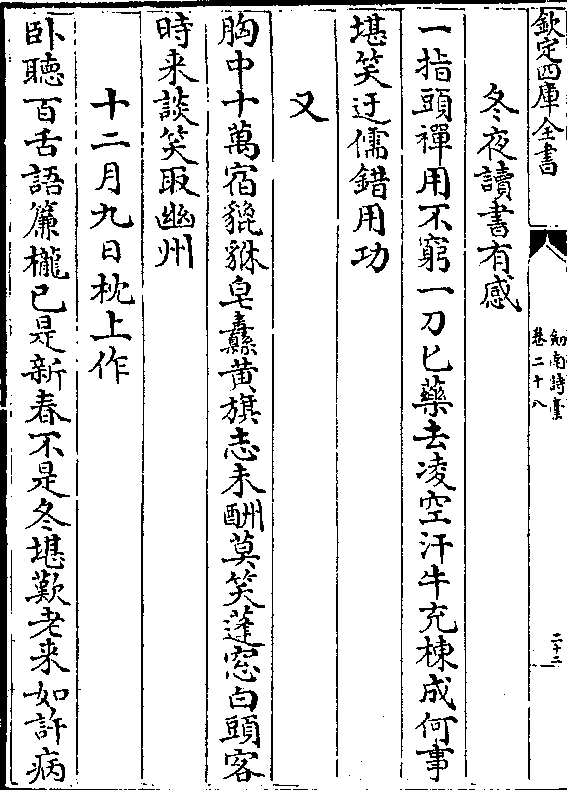 欽定四庫全書
劍南詩藁
卷二十八
二十二
冬夜讀書有感
一指頭禪用不窮一刀匕藥去凌空汗牛充棟成何事
堪笑迂儒錯用功
又
胸中十萬宿貔貅皂纛黄旗志未酬莫笑蓬窓白頭客
時来談笑取幽州
十二月九日枕上作
卧聽百舌語簾櫳已是新春不是冬堪歎老来如許病